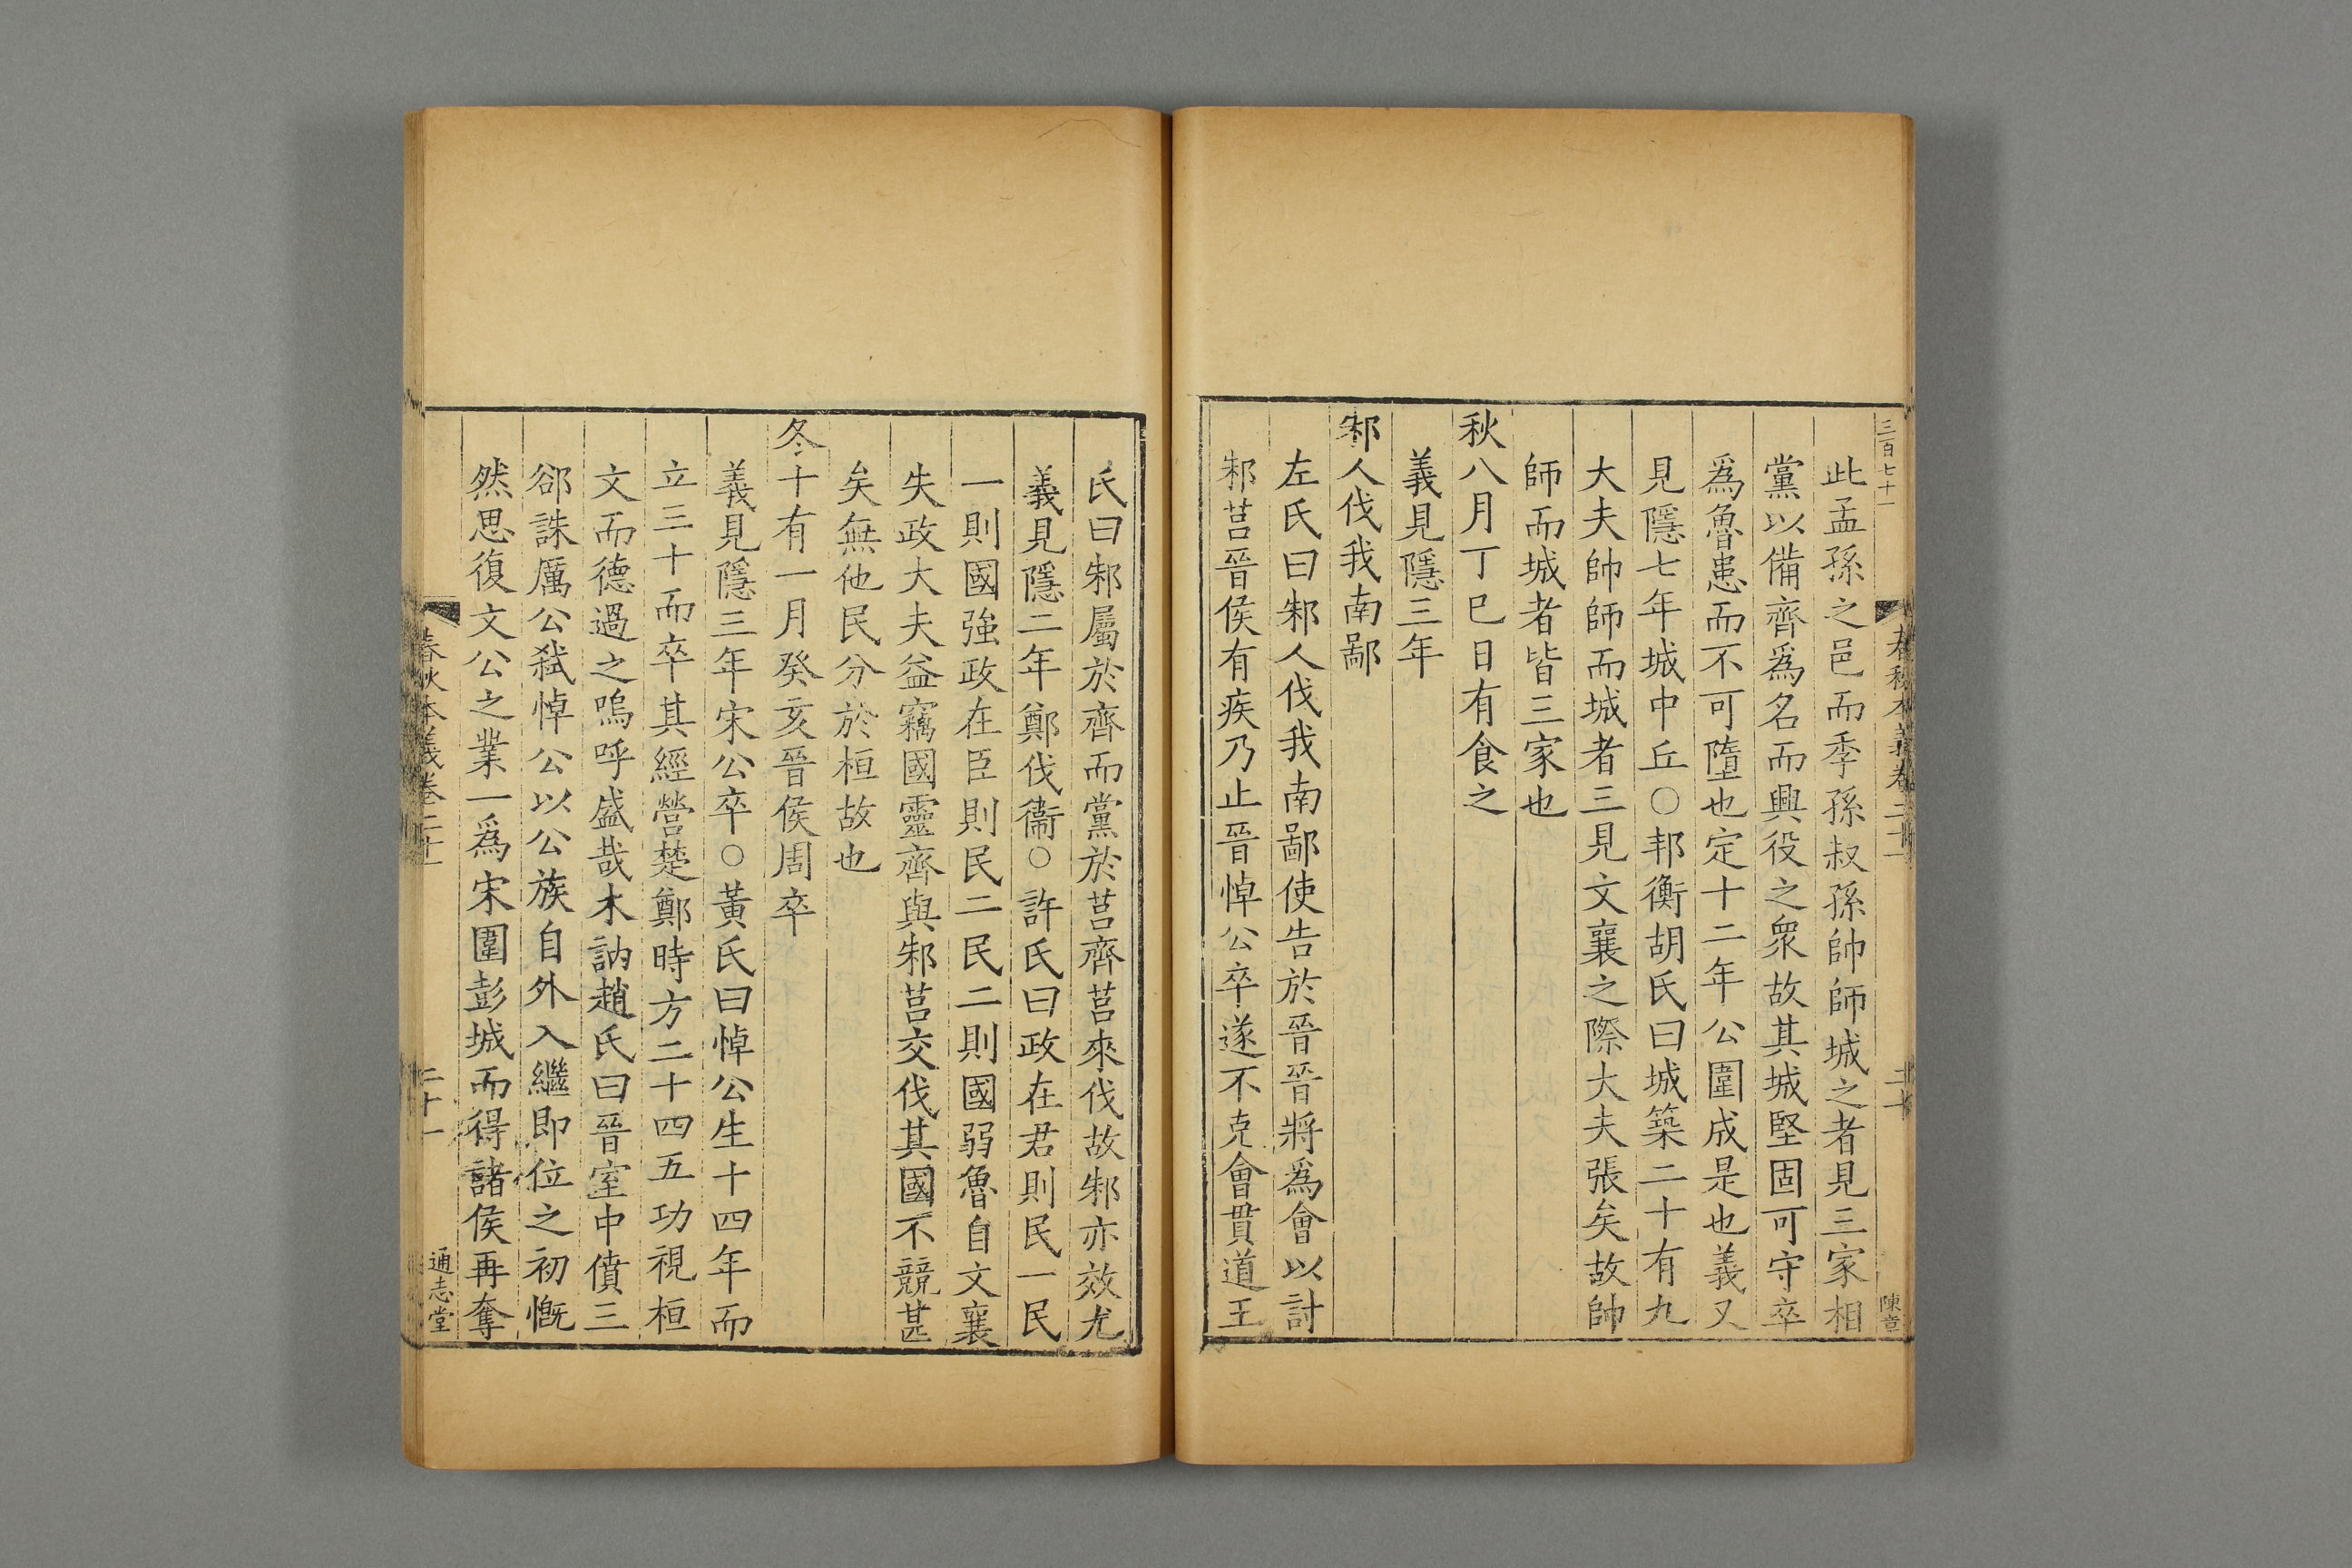 三百七十一
春秋本義卷二十一
二十
陳章
此孟孫之邑而季孫叔孫帥師城之者見三家相
黨以備齊爲名而興役之衆故其城堅固可守卒
爲魯患而不可墮也定十二年公圍成是也義又
見隱七年城中丘○邦衡胡氏曰城築二十有九
大夫帥師而城者三見文襄之際大夫張矣故帥
師而城者皆三家也
秋八月丁巳日有食之
義見隱三年
邾人伐我南鄙
左氏曰邾人伐我南鄙使告於晉晉將爲會以討
邾莒晉侯有疾乃止晉悼公卒遂不克會貫道王
氏曰邾屬於齊而黨於莒齊莒來伐故邾亦效尤
義見隱二年鄭伐衞○許氏曰政在君則民一民
一則國強政在臣則民二民二則國弱魯自文襄
失政大夫益竊國靈齊與邾莒交伐其國不競甚
矣無他民分於桓故也
冬十有一月癸亥晉侯周卒
義見隱三年宋公卒○黃氏曰悼公生十四年而
立三十而卒其經營楚鄭時方二十四五功視桓
文而德過之嗚呼盛哉木訥趙氏曰晉室中僨三
郤誅厲公弒悼公以公族自外入繼即位之初慨
然思復文公之業一爲宋圍彭城而得諸侯再奪
春秋本義卷二十一
二十一
通志堂